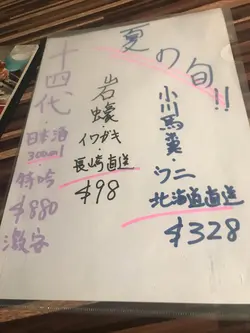 夏の旬!!
小川馬糞・ウニ
北海道直送
$328
岩蠔・
イワガキ・
長崎直送
$98
十四代・
日本酒
300ml
特吟
$880
激安